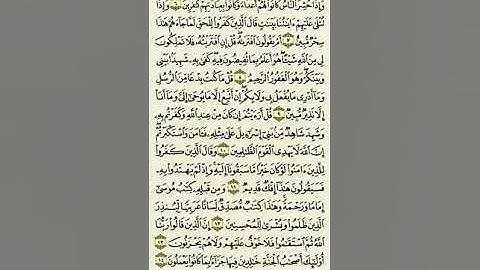 وَإِذَا حُشِرَ النَّاسُ كَانُوا لَهُمْ أَعْدَاءً وَكَانُوا بِعِبَادَتِهِمْ كَافِرِينَ ۝٦ وَإِذَا
تُتْلَى عَلَيْهِمْ آيَاتُنَا بَيِّنَاتٍ قَالَ الَّذِينَ كَفَرُوا لِلْحَقِّ لَمَّا جَاءَهُمْ هَذَا
سِحْرٌ مُبِينٌ ۝٧ أَمْ يَقُولُونَ افْتَرَاهُ قُلْ إِنِ افْتَرَيْتُهُ فَلَا تَمْلِكُونَ
لِي مِنَ اللَّهِ شَيْئًا هُوَ أَعْلَمُ بِمَا تُفِيضُونَ فِيهِ كَفَى بِهِ شَهِيدًا بَيْنِي
وَبَيْنَكُمْ وَهُوَ الْغَفُورُ الرَّحِيمُ ۝٨ قُلْ مَا كُنْتُ بِدْعًا مِنَ الرُّسُلِ
وَمَا أَدْرِي مَا يُفْعَلُ بِي وَلَا بِكُمْ إِنْ أَتَّبِعُ إِلَّا مَا يُوحَى إِلَيَّ وَمَا أَنَا
إِلَّا نَذِيرٌ مُبِينٌ ۝٩ قُلْ أَرَأَيْتُمْ إِنْ كَانَ مِنْ عِنْدِ اللَّهِ وَكَفَرْتُمْ بِهِ
وَشَهِدَ شَاهِدٌ مِنْ بَنِي إِسْرَائِيلَ عَلَى مِثْلِهِ فَآمَنَ وَاسْتَكْبَرْتُمْ
إِنَّ اللَّهَ لَا يَهْدِي الْقَوْمَ الظَّالِمِينَ ۝١٠ وَقَالَ الَّذِينَ كَفَرُوا
لِلَّذِينَ آمَنُوا لَوْ كَانَ خَيْرًا مَا سَبَقُونَا إِلَيْهِ وَإِذْ لَمْ يَهْتَدُوا بِهِ
فَسَيَقُولُونَ هَذَا إِفْكٌ قَدِيمٌ ۝١١ وَمِنْ قَبْلِهِ كِتَابُ مُوسَى
إِمَامًا وَرَحْمَةً وَهَذَا كِتَابٌ مُصَدِّقٌ لِسَانًا عَرَبِيًّا لِيُنْذِرَ
الَّذِينَ ظَلَمُوا وَبُشْرَى لِلْمُحْسِنِينَ ۝١٢ إِنَّ الَّذِينَ قَالُوا رَبُّنَا
اللَّهُ ثُمَّ اسْتَقَامُوا فَلَا خَوْفٌ عَلَيْهِمْ وَلَا هُمْ يَحْزَنُونَ ۝١٣
أُولَئِكَ أَصْحَابُ الْجَنَّةِ خَالِدِينَ فِيهَا جَزَاءً بِمَا كَانُوا يَعْمَلُونَ ۝١٤